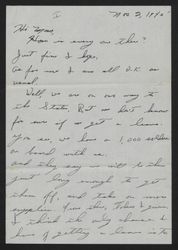 Nov 2, 1945
Hi Mom,
How is every one there?
Just fine I hope.
As for me I am all O.K. as
usual.
Well, we are on our way to
the States, But we don't know
for sure if we get a leave.
You see, we have a 1,000 soldiers
on board with us.
and they say we will be there
just long enough to get
them off, and take on more
supplies
I think the only chance I
have of getting a leave is to